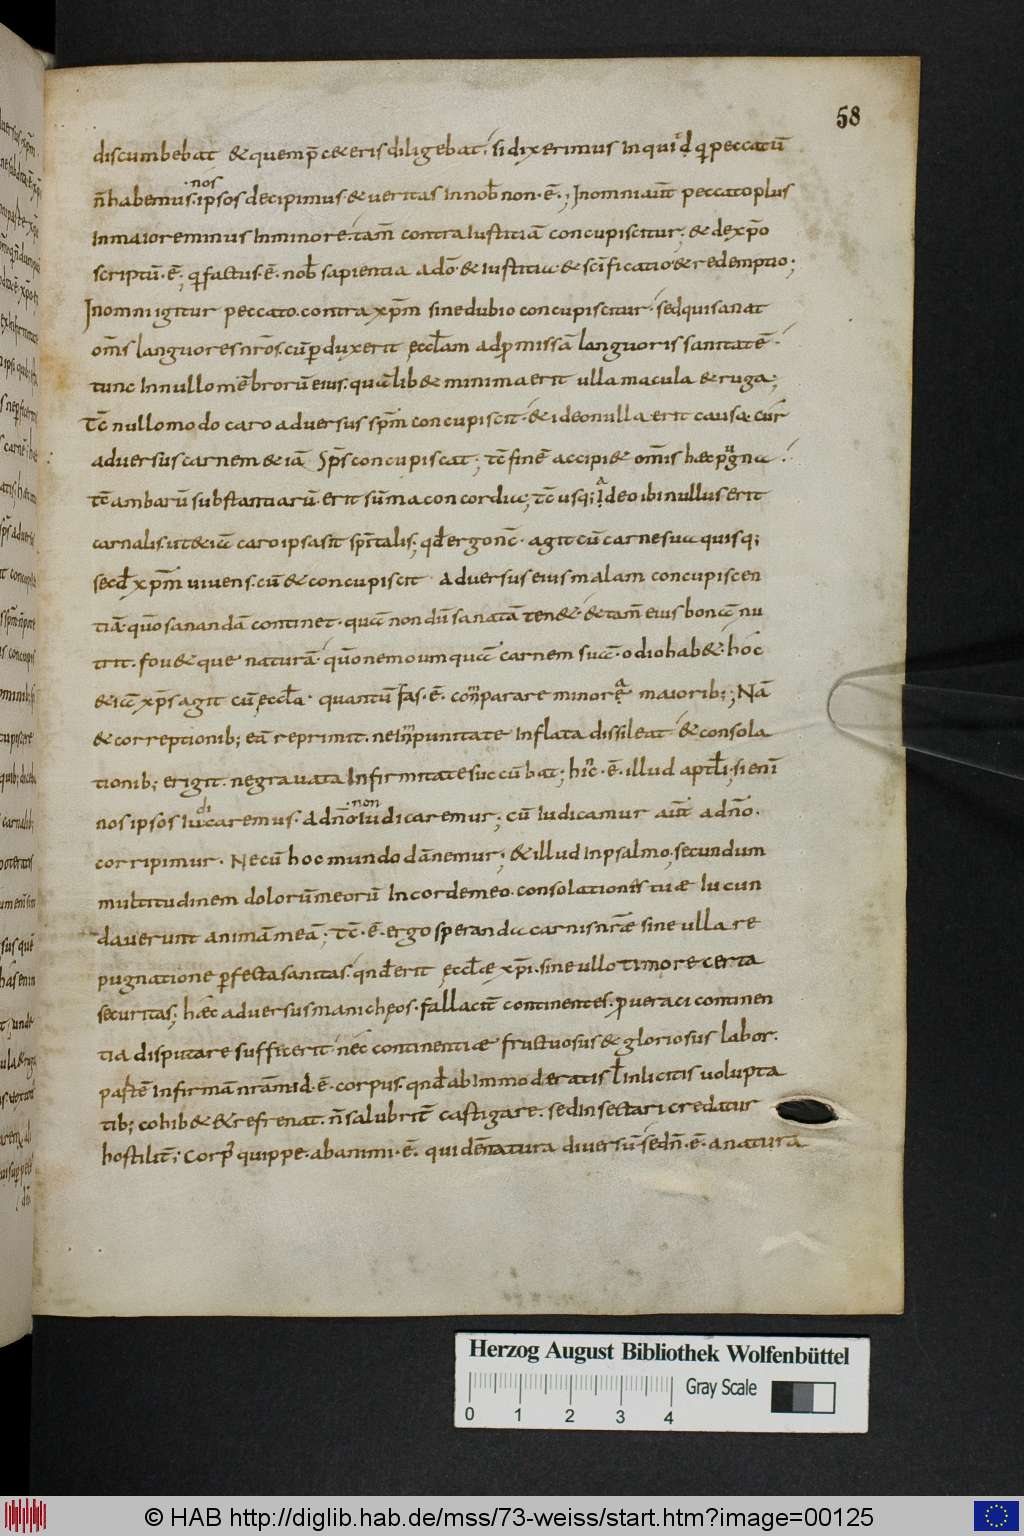 58
discumbebat & quem p̄ ceteris diligebat; si dixerimus inquid qi peccatū
n̄ habemus. nos ipsos decipimus. & ueritas in nob̄ non. ē.; In omni aūt peccato plus
in maiore minus in minore. tam̄ contra iustitiā concupiscitur; & de xp̄o
scriptū. ē, qi factus. ē. nob̄ sapientia a dō & iustitia & sc̄ificatio & redemptio;
In omni igitur peccato. contra xp̄m sine dubio concupiscitur. sed qui sanat
om̄s languores nr̄os. cū perduxerit ęccl̄am ad pmissā languoris sanitatē.
tunc in nullo mēbrorū eius. qualib& minima erit ulla macula & ruga;
Tc̄ nullo modo caro aduersus spm̄ concupiscit. & ideo nulla erit causa. cur
aduersus carnem & iā sp̄s concupiscat; tc̄ finē accipi& om̄is haec pugna.
tc̄ ambarū substantiarū. erit sūma concordia; tc̄ usq; adeo ibi nullus erit
carnalis. ut & ia caro ipsa sit sp̄italis; qd̄ ergo nc̄. agit cū carne sua quisq;
secd̄ xp̄m uiuens. cū & concupiscit aduersus eius malam concupiscen
tiā. quō sanandā continet. qua nondū sanatā ten&. & tam̄ eius bona nu
trit. fou&que naturā. quō nemo umqua carnem sua. odio hab&. hoc
& ia xp̄s agit cū ęccl̄a. quantū fas. ē. comparare minora maiorib;; Nā
& correptionib; eā reprimit. ne inpunitate inflata dissileat & consola
tionib; erigit. ne grauata infirmitate succūbat; hinc. ē. illud aptl̄i; si enī
nos ipsos iudicaremus. a dn̄o non iudicaremur; cū iudicamur aūt a dn̄o.
corripimur. Ne cū hoc mundo dānemur; & illud in psalmo, secundum
multitudinem dolorū meorū in corde meo. consolationis tuae iucun
dauerunt animā meā; Tc̄. ē. ergo speranda carnis nr̄ae sine ulla re
pugnatione perfecta sanitas. qn̄d erit ęccl̄ae xp̄i. sine ullo timore certa
securitas; haec aduersus manichęos. fallacit̄ continentes. p ueraci continen
tia disputare suffecerit. nec continentiae fructuosus & gloriosus labor.
partē infirmā nr̄am id. ē. corpus. qn̄d ab immoderatis l̄ inlicitis uolupta
tib; cohib& & refrenat. n̄ salubrit̄ castigare. sed insectari credatur
hostilit̄; Corp; quippe. ab animi. ē. quidē natura diuersū. sed n̄. ē. a natura
Herzog August Bibliothek Wolfenbüttel
Gray Scale
0 1 2 3 4
© HAB http://diglib.hab.de/mss/73-weiss/start.htm?image=00125